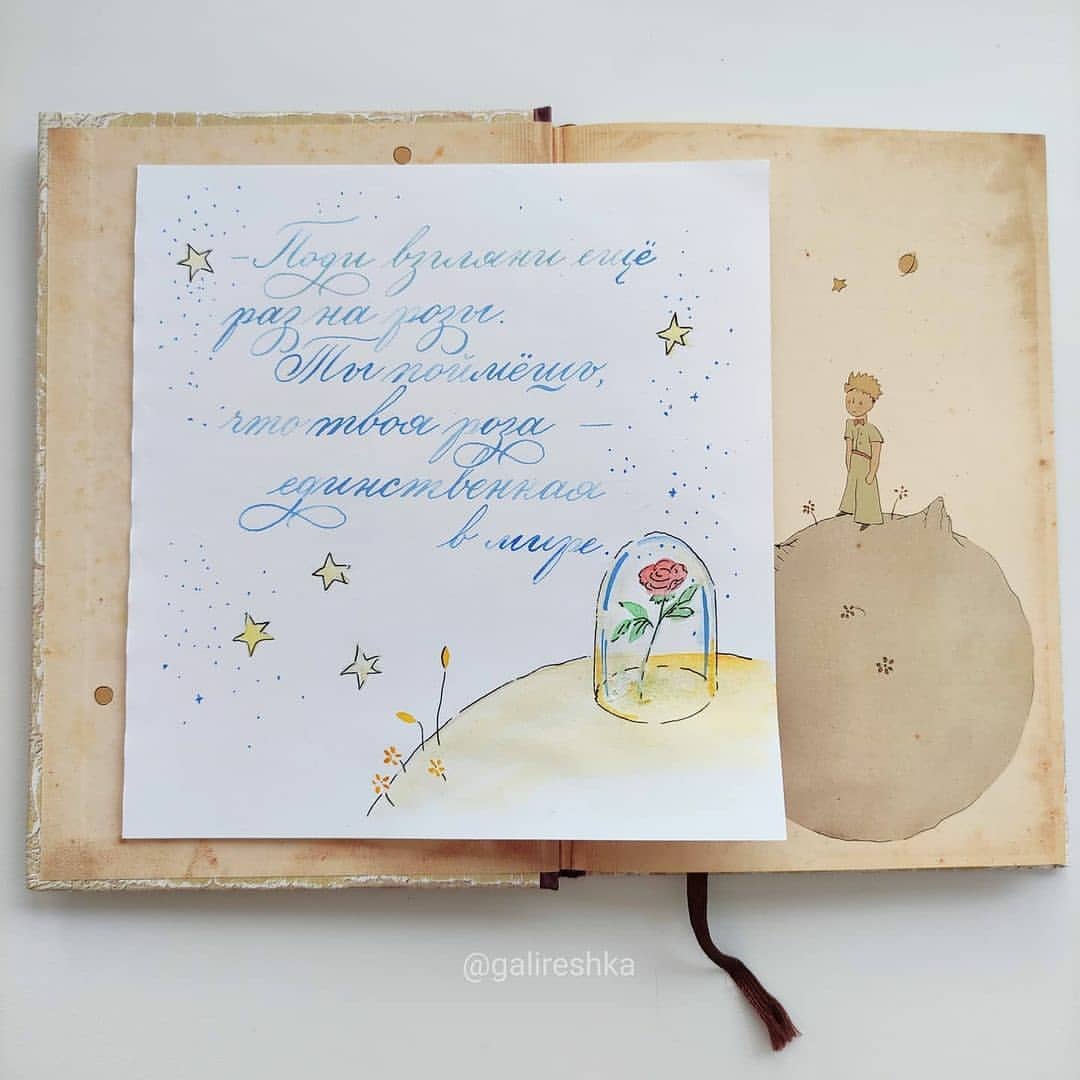 – Поди взгляни ещё
раз на розы.
Ты поймёшь,
что твоя роза —
единственная
в мире.
@galireshka